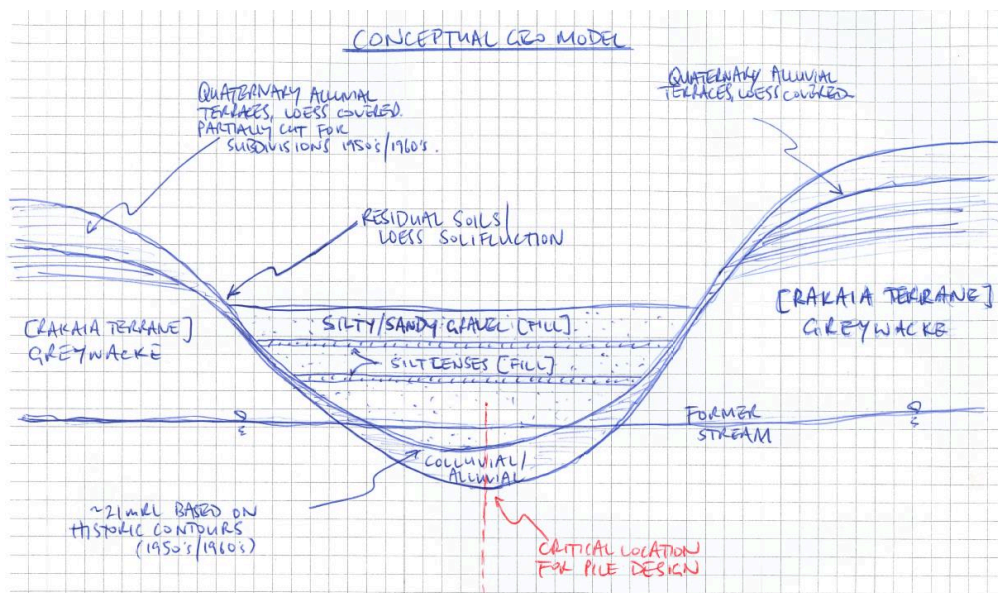 CONCEPTUAL GEO MODEL
QUATERNARY ALLUVIAL
TERRACES, LOESS COVERED.
PARTIALLY CUT FOR
SUBDIVISIONS 1950's/1960's.
QUATERNARY ALLUVIAL
TERRACES, LOESS COVERED
RESIDUAL SOILS/
LOESS SOLIFLUCTION
[RAKAIA TERRANE]
GREYWACKE
SILTY/SANDY GRAVEL [FILL]
SILT LENSES [FILL]
[RAKAIA TERRANE]
GREYWACKE
FORMER
STREAM
COLLUVIAL/
ALLUVIAL
~21mRL BASED ON
HISTORIC CONTOURS
(1950's/1960's)
CRITICAL LOCATION
FOR PILE DESIGN